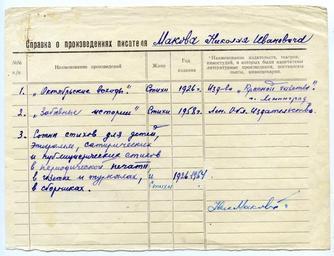 Справка о произведениях писателя Макова Николая Ивановича
№№ п/п
Наименование произведений
Жанр
Год издания
Наименование издательств, театров, киностудий, в которых были напечатаны литературные произведения, поставлены пьесы, киносценарии.
1. „Октябрьские всходы" Стихи 1926 г. Изд-во „Красной газеты" г. Ленинград
2. „Забавные истории" Стихи 1958 г. Лен. Изд-ство.
3. Сотня стихов для детей,
сатирических
и публицистических стихов
в периодической печати
в газетах и журналах, и
в сборниках. Стихи 1926 1964
Ник Маков